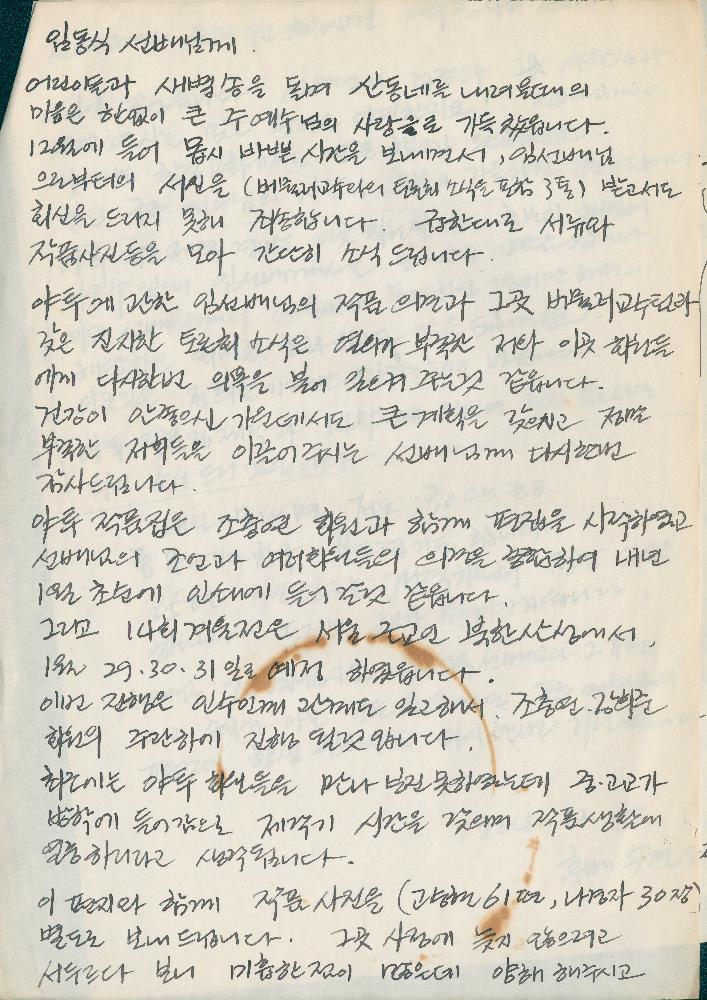 임동식 선배님께.
어린이들과 새벽송을 돌며 산동네를 내려올때의
마음은 한없이 큰 주예수님의 사랑으로 가득찼읍니다.
12월에 들어 몹시 바쁜 시간을 보내면서, 임선배님
으로부터의 서신을 (버물리교수와의 토론회 소식을 포함 3통) 받고서도
회신을 드리지 못해 죄송합니다. 급한대로 서류와
작품사진등을 모아 간단히 소식 드립니다.
야투에 관한 임선배님의 작품 의견과 그곳 교수님과
갖은 진지한 토론회 소식은 열의가 부족한 저와 이곳 회원들
에게 다시한번 의욕을 불어 일으켜 주는것 같읍니다.
건강이 안좋으신 가운데서도 큰 계획을 갖으시고 정말
부족한 저희들을 이끌어주시는 선배님께 다시한번
감사드립니다.
야투 작품집은 조충연 회원과 함께 편집을 시작하였고
선배님의 조언과 여러회원들의 의견을 종합하여 내년
1월 초순에 인쇄에 들어 갈것 같읍니다.
그리고 14회 겨울전은 서울 근교인 북한산성에서,
1월 29.30.31일로 예정 하였읍니다.
이번 진행은 인수인계 관계도 있고해서, 조충연.강희준
회원의 주관하에 진행 될것 입니다.
최근에는 야투 회원들을 만나 보진 못하였는데 중.고교가
방학에 들어감으로 제각기 시간을 갖으며 작품생활에
열중하리라고 생각됩니다.
이 편지와 함께 작품 사진을 (고승현 61편, 나머지 30장)
별도로 보내드립니다. 그곳 사정에 늦지 않으려고
서두르다 보니 미흡한점이 많은데 양해 해주시고